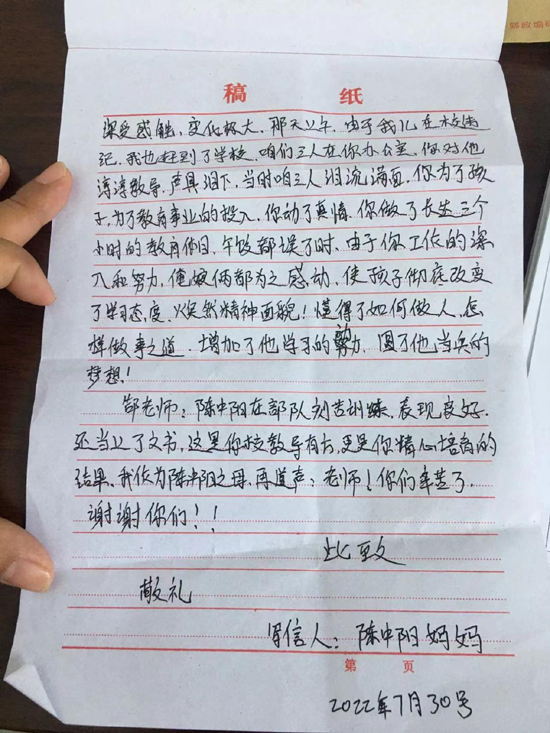 邮政编
稿 纸
深受感触，变化极大，那天上午，由于我儿在校违
纪，我也赶到了学校，咱们三人在你办公室，你对他
谆谆教导，声具泪下，当时咱三人泪流满面，你为了孩
子，为了教育事业的投入，你动了真情，你做了长达三个
小时的教育作用，午饭都误了时，由于你工作的深
入和努力，俺娘俩都为之感动，使孩子彻底改变
了学习态度，焕然精神面貌！懂得了如何做人，怎
样做事之道，增加了他学习的努力，圆了他当兵的
梦想！
郜老师：陈中阳在部队刻苦训练，表现良好，
还当上了文书，这是你校教导有方，更是你精心培育的
结果，我作为陈中阳之母，再道声：老师！你们辛苦了，
谢谢你们！！
此致
敬礼
写信人：陈中阳妈妈
第 页
2022年7月30号